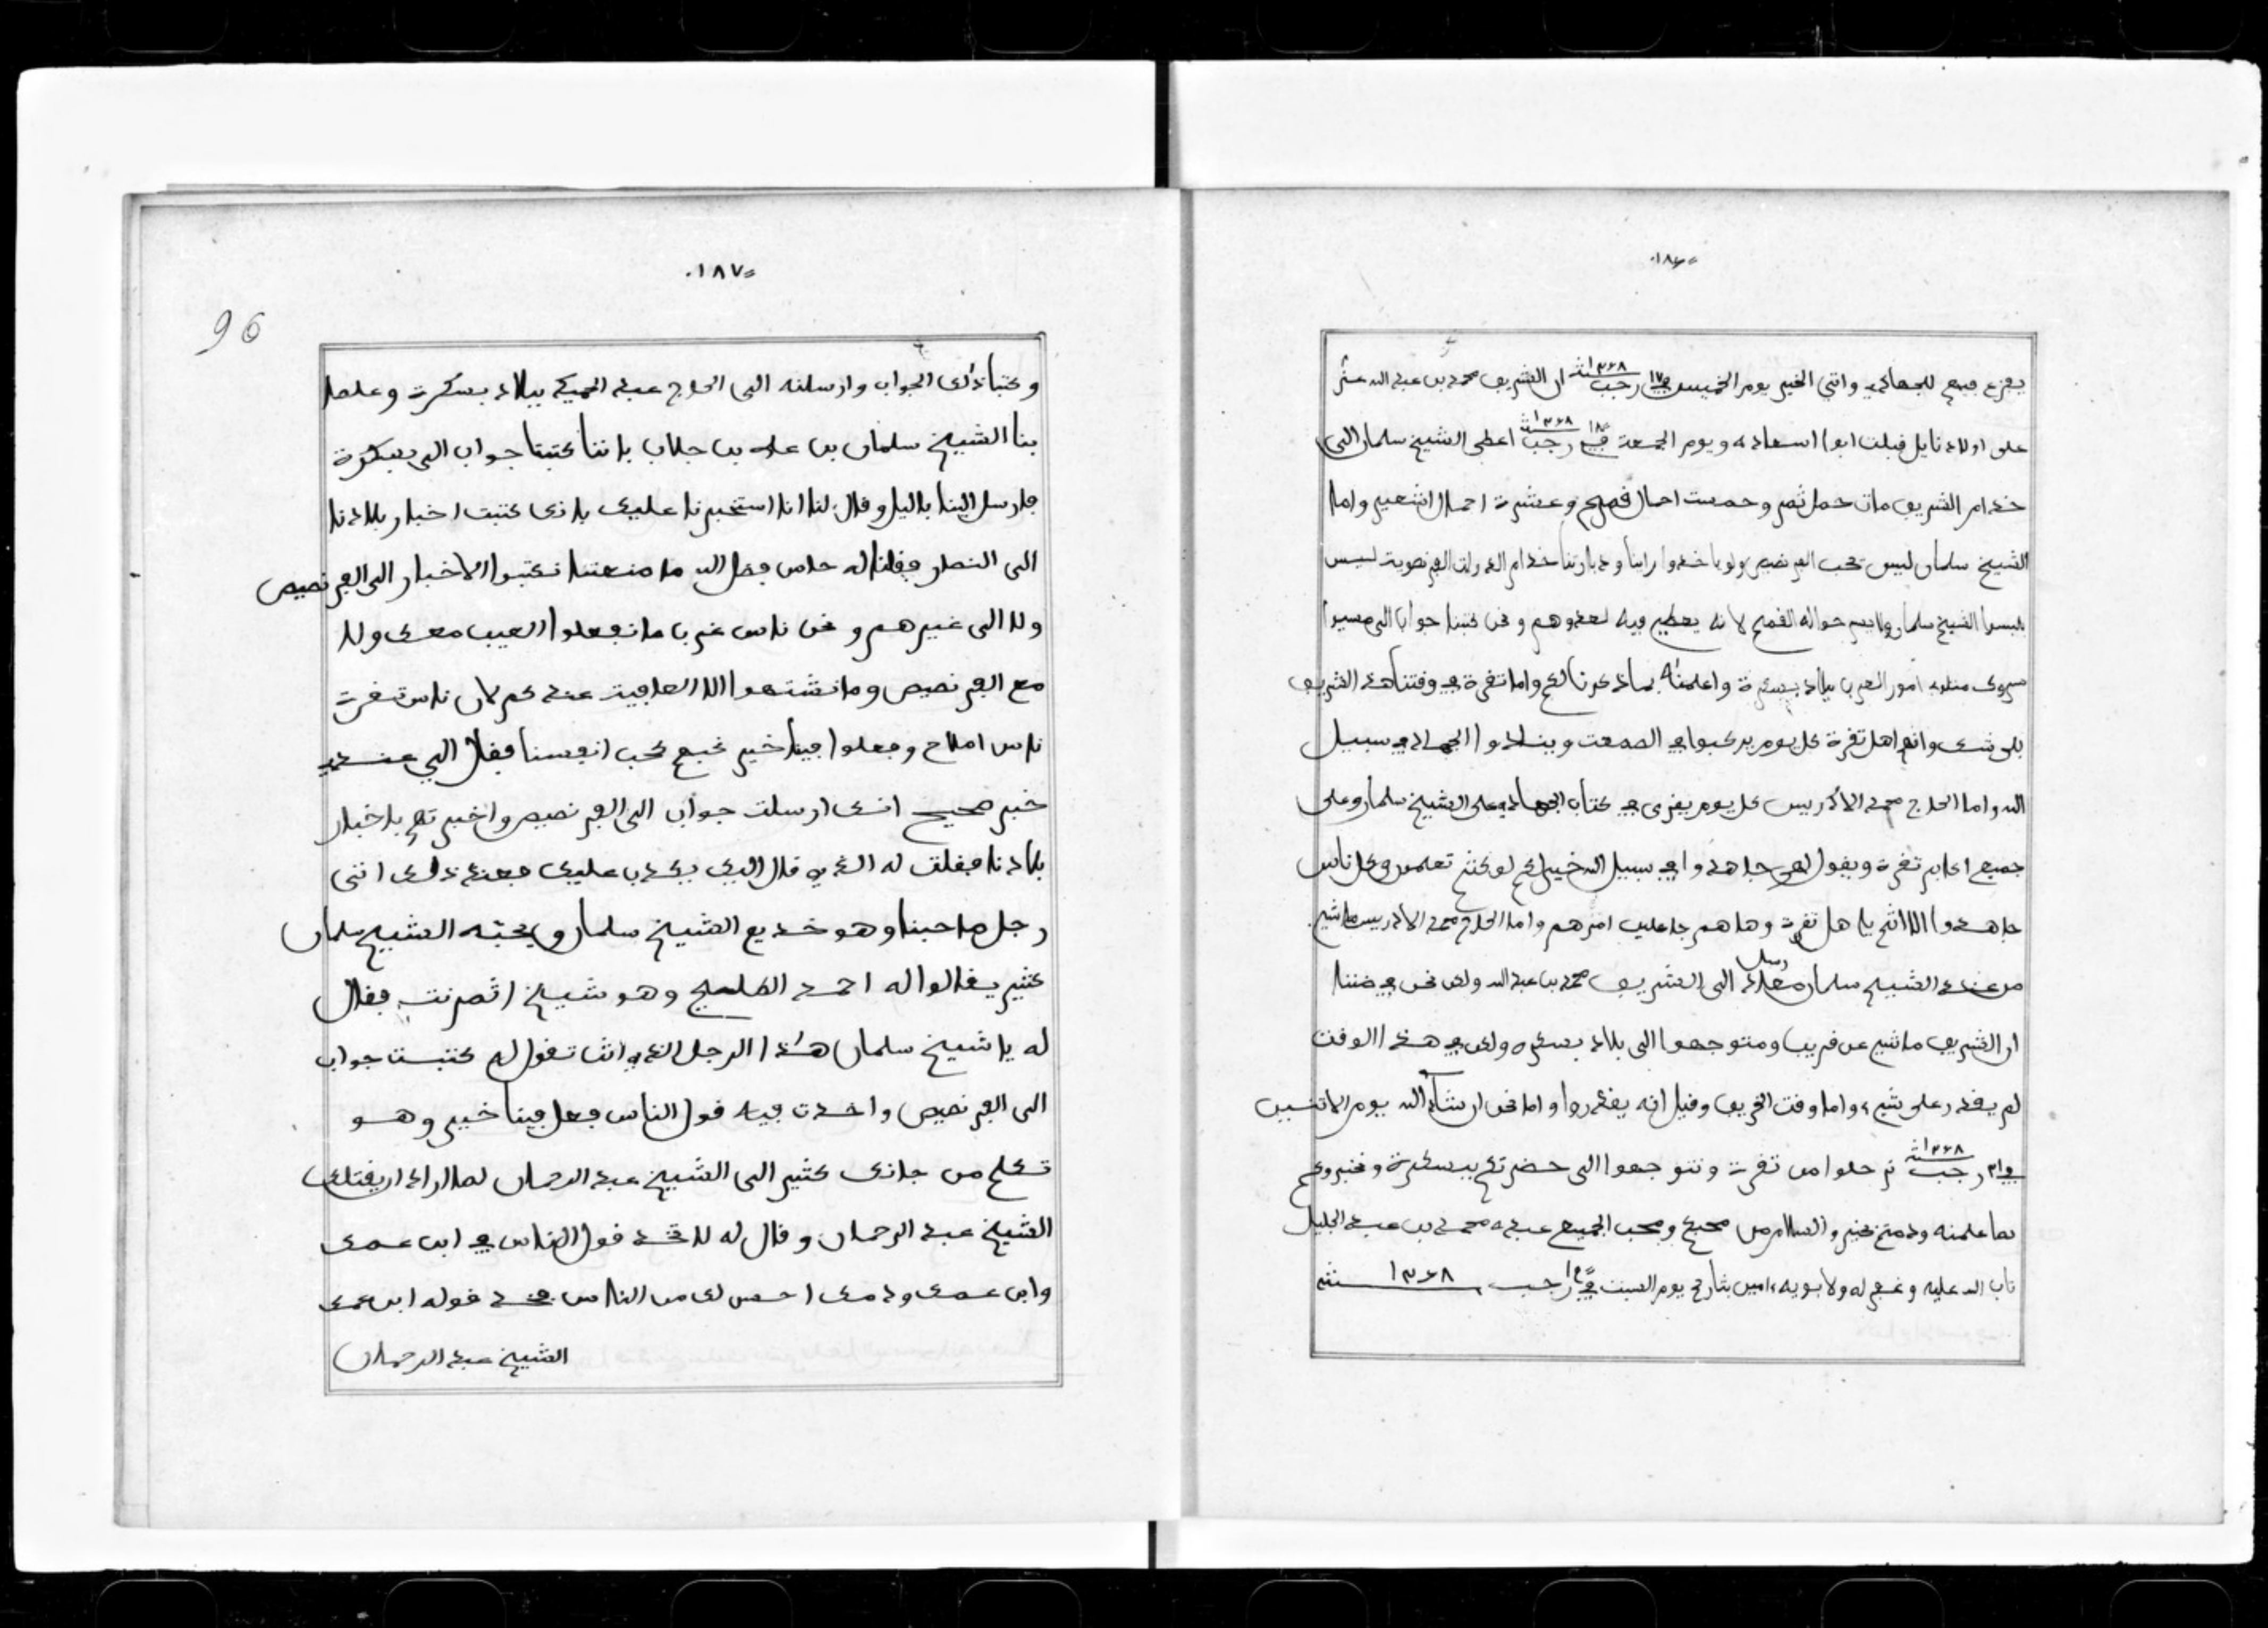 ١٨٦
يفزع جميع للجهاد واتى الخبر يوم الخميس ١٧ رجب ١٢٦٨ ان الشريف محمد بن عبد الله عشر
على اولاد نايل قبلت ابوا اسعاده ويوم الجمعة ١٨ رجب ١٢٦٨ اعطى الشيخ سلمان الى
خدام الشريف مات حمل ثمر وخمست احمال قمح وعشرة احمال اشعير واما
الشيخ سلمان ليس تحب الفرنصيص ولو ياخدوا راينا ودبارتنا خدام الدولت الفرنصويت ليس
الشيخ سلمان ولا حواله القمح لانه يعطيه لعدوهم ونحن كتبنا جواب الى مسيوا
امور العرب ببلاد بسكرة واعلمناه بماذكرنا لكم واما تقرة في وقتنا هذا الشريف
بلى شك وانهم اهل تقرة كل يوم يركبوا في الصمعت وينادوا الجهاد في سبيل
الله واما الحاج محمد الادريس كل يوم يقرى في كتاب الجهاد على الشيخ سلمان وعلى
جميع اكابر تقرة ويقول لهم جاهدوا في سبيل الله خير لكم لو كنتم تعلمون وكل ناس
جاهدوا الا انتم يا هل تقرة وهاهم جاعلين امرهم واما الحاج محمد الادريس ماشي
من عند الشيخ سلمان رسل الى الشريف محمد بن عبد الله ولكن نحن في ضننا
ان الشريف ماشي عن قريب ومتوجهوا الى بلاد بسكره ولكن في هذا الوقت
لم يقدر على شيء واما وقت الخريف وقيل انه يقدروا واما نحن ان شاء الله يوم الاثنين
في ٢١ رجب ١٢٦٨ نرحلوا من تقرة ونتوجهوا الى حضرتكم ببسكرة ونخبروكم
بما علمنه ودمتم بخير والسلام من محبكم ومحب الجميع عبده محمد بن عبد الجليل
تاب الله عليه وغفر له ولابويه ءامين بتاريخ يوم السبت في ١٩ رجب ١٢٦٨ سنة
١٨٧
96
وكتبنا ذلك الجواب وارسلنه الى الحاج عبد الحميد ببلاد بسكرت وعلم
بنا الشيخ سلمان بن علي بن جلاب باننا كتبنا جواب الى بسكرة
فارسل الينا بالليل وقال لنا انا استخبرنا عليك بانك كتبت اخبار بلادنا
الى النصار فقلنا له حاس فضل الله ما منعتنا نكتبوا الاخبار الى الفرنصيص
ولا الى غيرهم ونحن ناس غربا ما نفعلوا العيب معك ولا
مع الفرنصيص وما نشتهوا الا العافيت عندكم لان ناس تقرت
ناس املاح وفعلوا فينا خير نحب انفسنا فقال الي عندي
خبر صحيح انك ارسلت جواب الى الفرنصيص واخبرتهم باخبار
بلادنا فقلت له الذي قال اليك يكدب عليك فبعد ذلك اتى
رجل صاحبنا وهو خديع الشيخ سلمان ويحبه الشيخ سلمان
كثير يقالوا له احمد وهو شيخ اثمرنت فقال
له يا شيخ سلمان هذا الرجل الذي انت تقول له كتبت جواب
الى الفرنصيص واخدت فيه قول الناس فعل فينا خير وهو
تكلم من جانك كثير الى الشيخ عبد الرحمان لما اراد ان يقتلك
الشيخ عبد الرحمان وقال له لا تخد قول الناس في ابن عمك
وابن عمك ودمك احسن لك من الناس فخد قوله ابن عمك
الشيخ عبد الرحمان